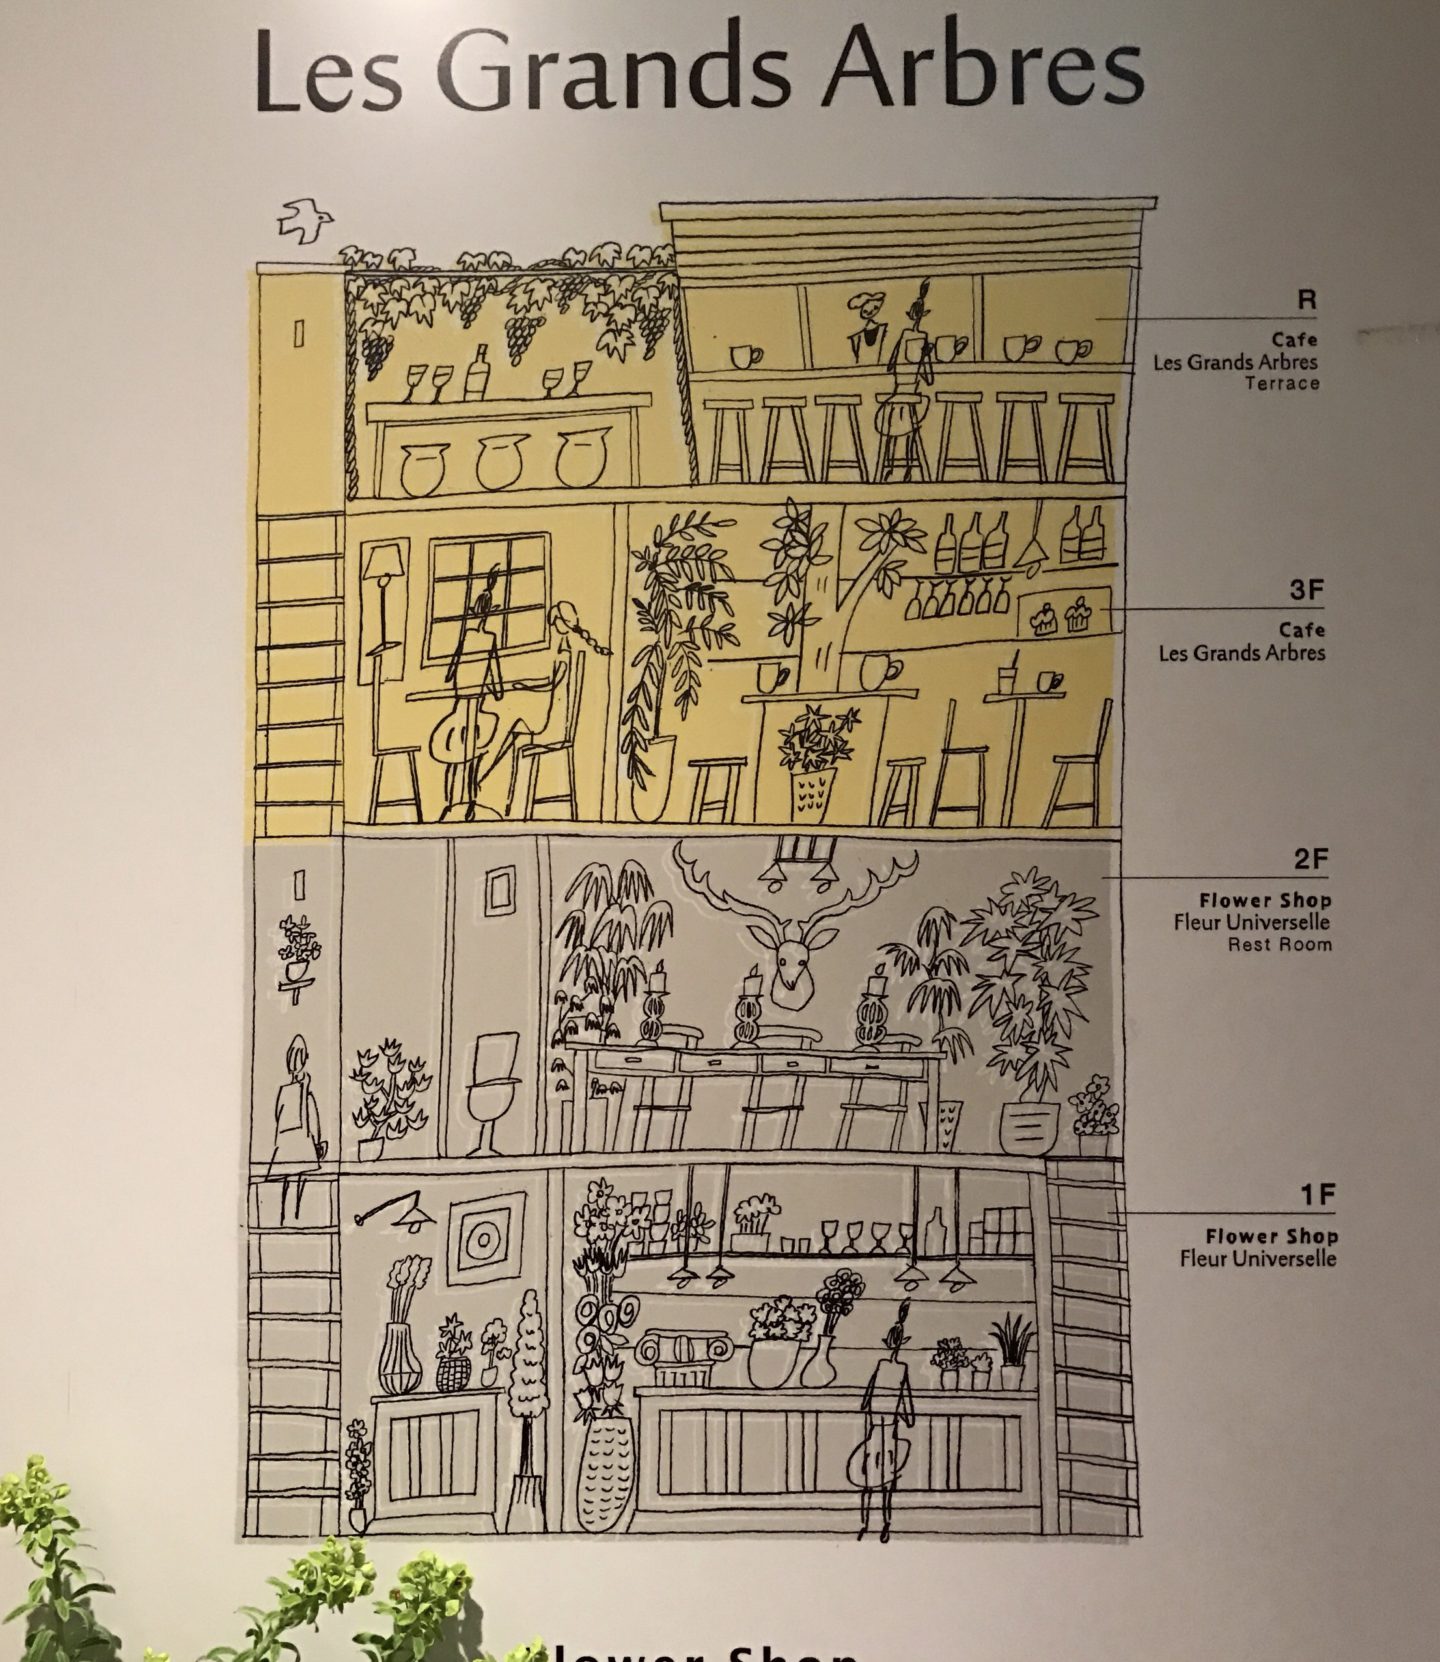 Les Grands Arbres
R
Cafe
Les Grands Arbres
Terrace
3F
Cafe
Les Grands Arbres
2F
Flower Shop
Fleur Universelle
Rest Room
1F
Flower Shop
Fleur Universelle
Flower Shop